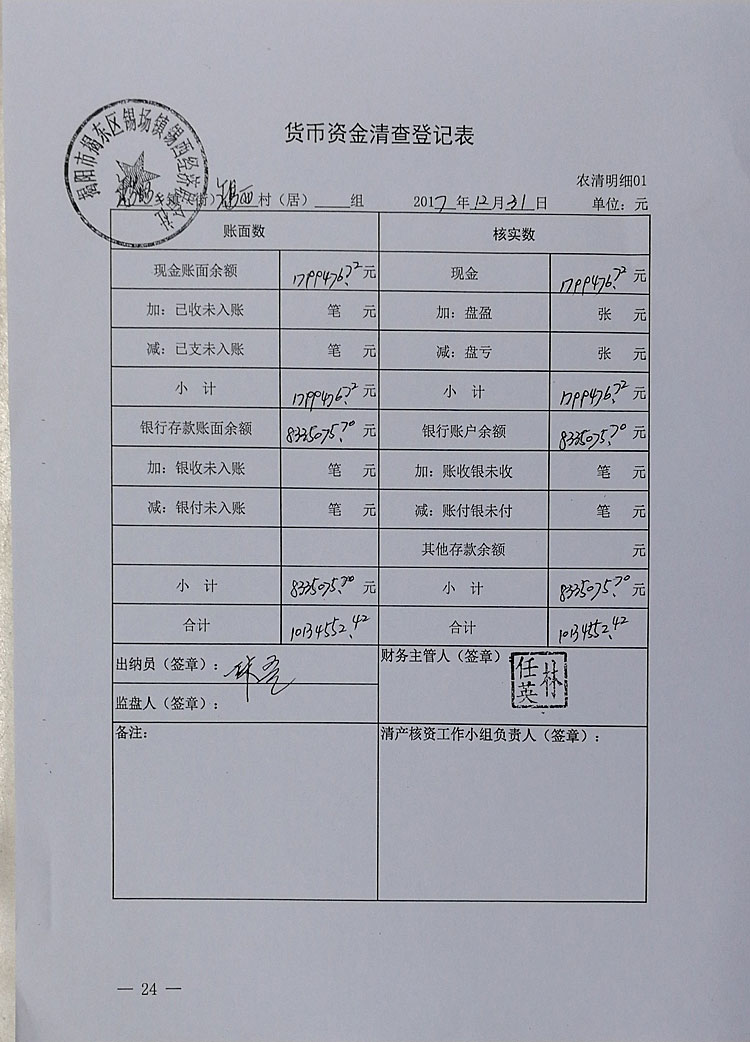 货币资金清查登记表
揭阳市揭东区锡场镇锡西经济联合社
农清明细01
锡场 乡镇(街) 锡西 村(居) 组 2017 年 12 月 31 日 单位：元
账面数 核实数
现金账面余额 1799476.72 元 现金 1799476.72 元
加：已收未入账 笔 元 加：盘盈 张 元
减：已支未入账 笔 元 减：盘亏 张 元
小 计 1799476.72 元 小 计 1799476.72 元
银行存款账面余额 8335075.70 元 银行账户余额 8335075.70 元
加：银收未入账 笔 元 加：账收银未收 笔 元
减：银付未入账 笔 元 减：账付银未付 笔 元
其他存款余额 元
小 计 8335075.70 元 小 计 8335075.70 元
合计 10134552.42 合计 10134552.42
出纳员（签章）： 财务主管人（签章） 林任英
监盘人（签章）：
备注： 清产核资工作小组负责人（签章）：
— 24 —